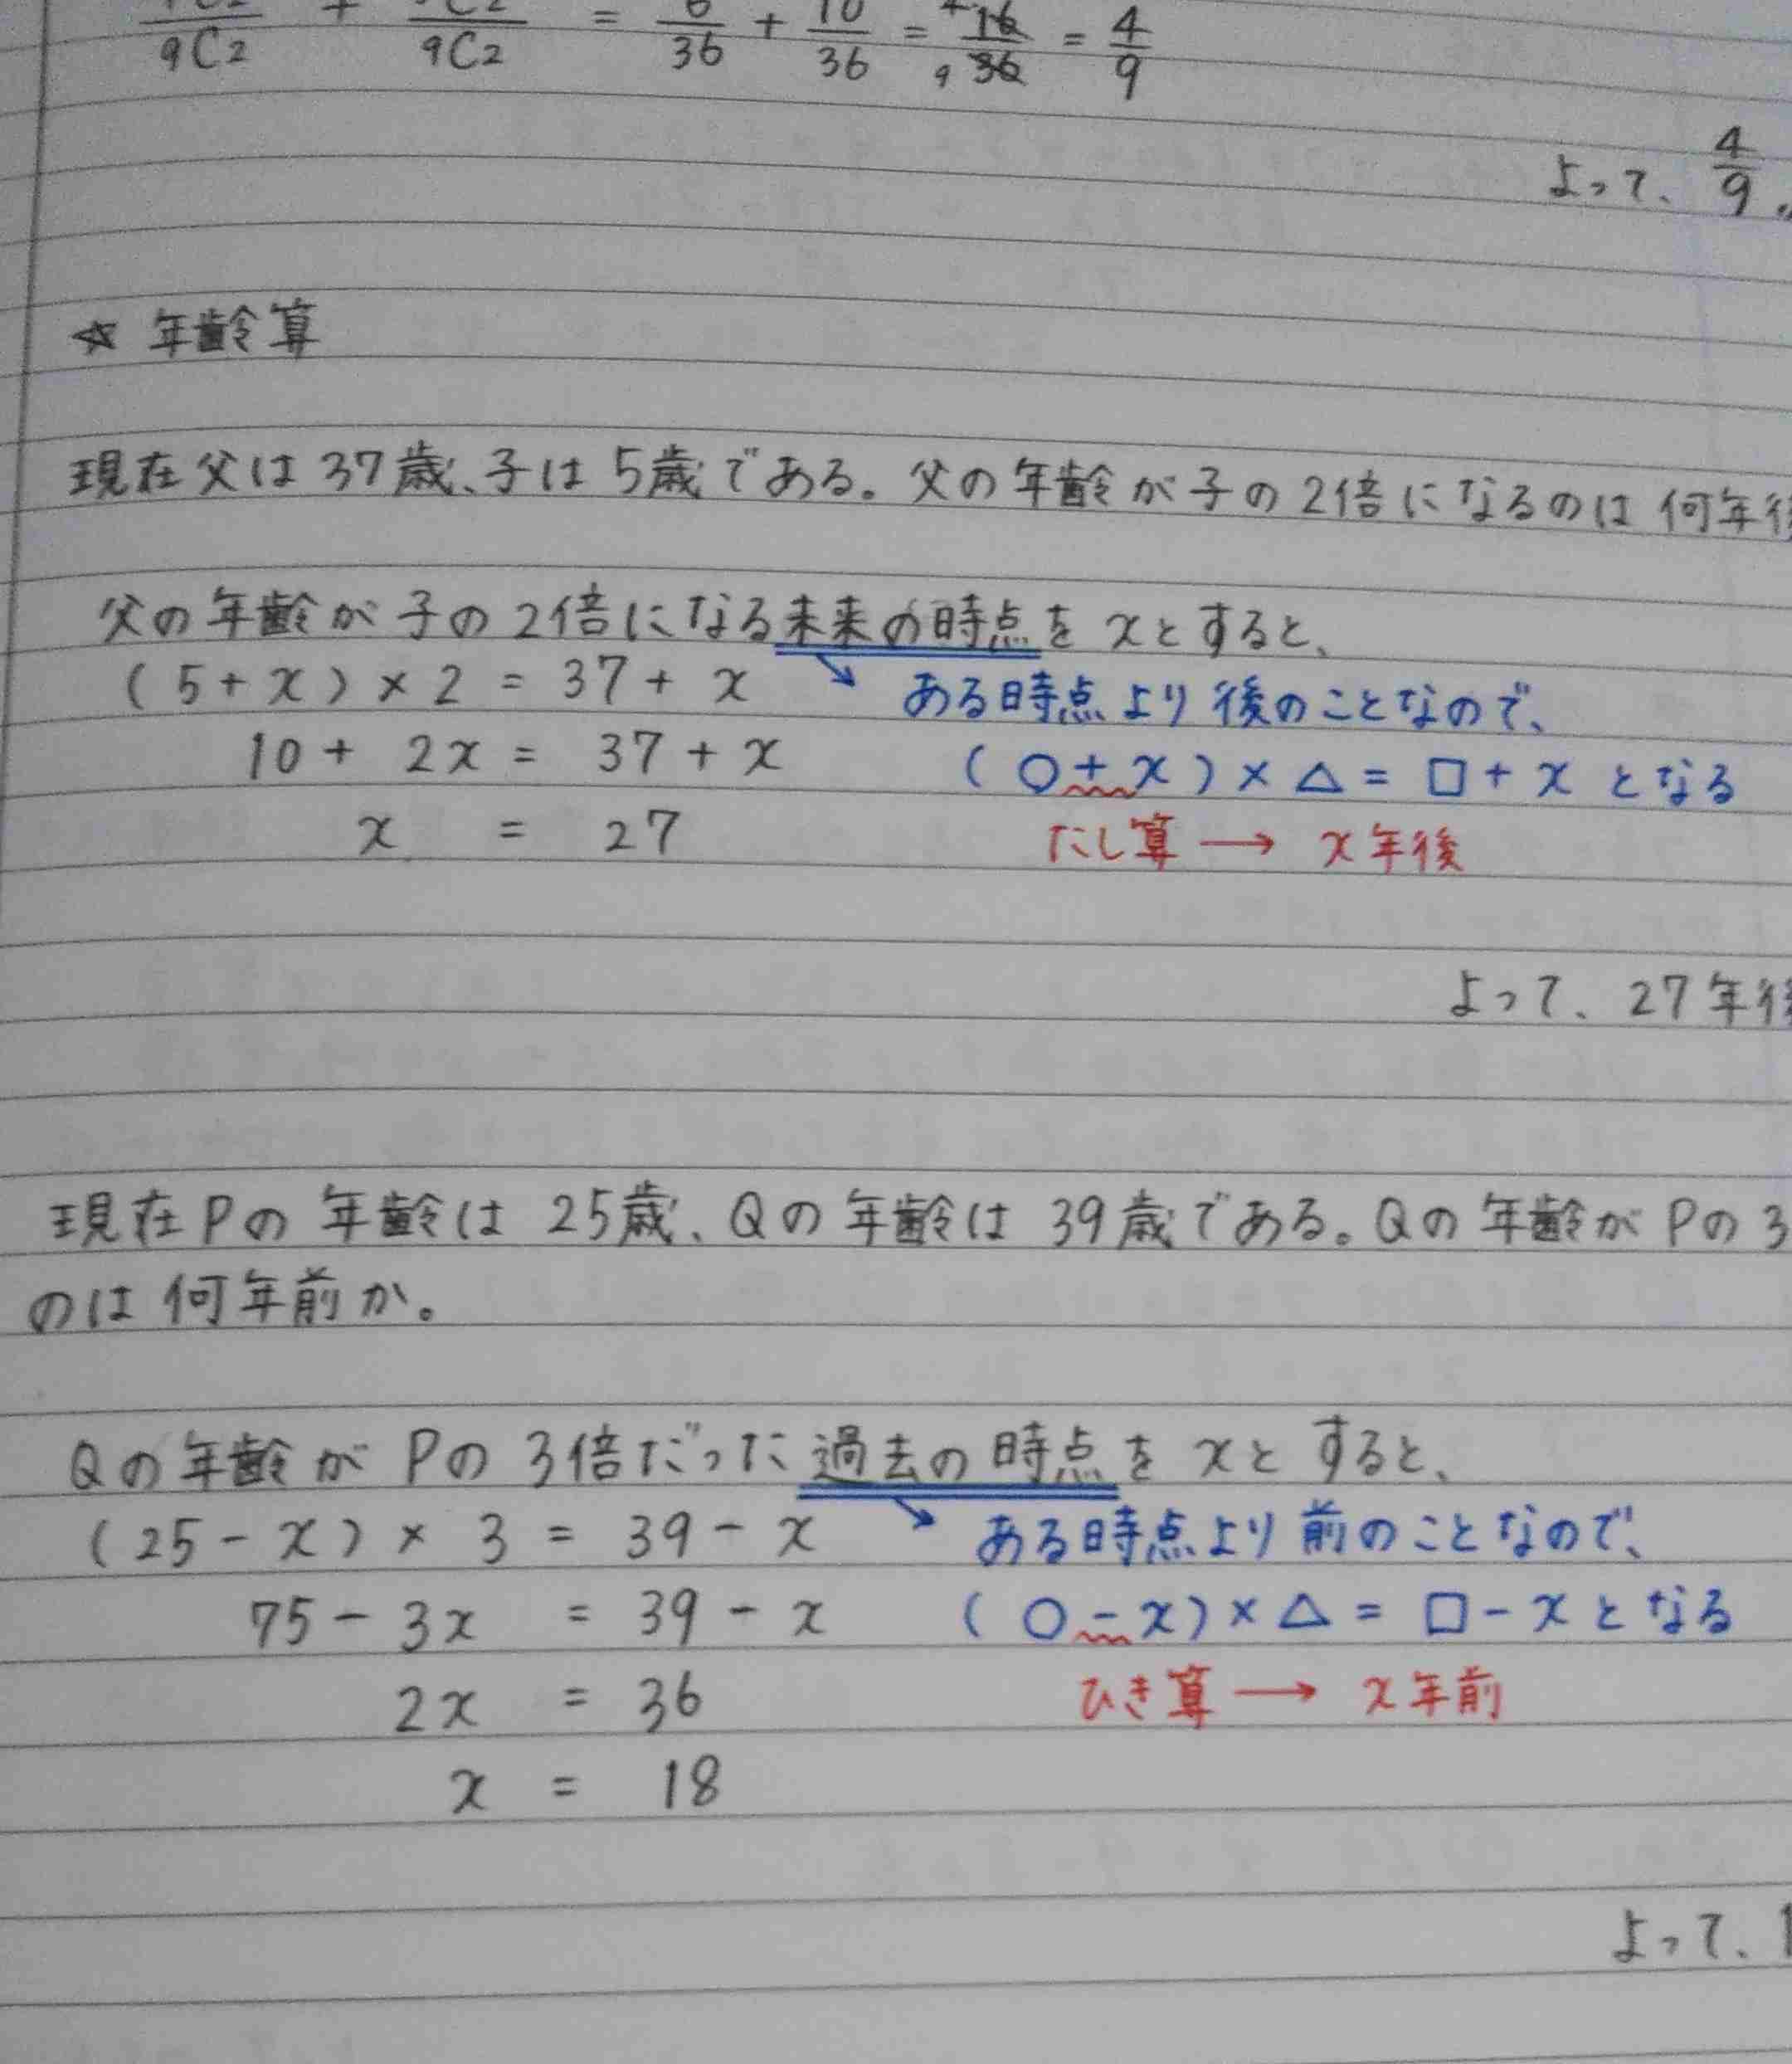 9C2 + 9C2 = 6/36 + 10/36 = 16/36 = 4/9
よって、4/9
☆ 年齢算
現在父は37歳、子は5歳である。父の年齢が子の2倍になるのは何年後
父の年齢が子の2倍になる未来の時点をxとすると、
(5+x)×2 = 37+x
ある時点より後のことなので、
10+2x = 37+x
(○+x)×△=□+xとなる
x = 27
たし算→x年後
よって、27年後
現在Pの年齢は25歳、Qの年齢は39歳である。Qの年齢がPの3
のは何年前か。
Qの年齢がPの3倍だった過去の時点をxとすると、
(25-x)×3 = 39-x
ある時点より前のことなので、
75-3x = 39-x
(○-x)×△=□-xとなる
2x = 36
ひき算→x年前
x = 18
よって、1